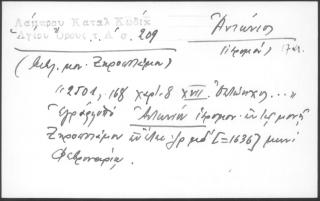 Λάμπρου Κατάλ Κωδίχ
Ἁγίου Ὄρους τ. Α΄ σ. 209
Ἀντώνιος
ἱερομόν. 17 αι.
(Μεγ. μον. Ξηροποτάμου)
"2501, 168 χαρτ. 8 XVII
Ἐγράφη ὑπὸ Ἀντωνίου ἱερομον. ἐν τῇ μονῇ
Ξηροποτάμου ἐν ἔτει ͵ζρμδ΄ [=1636] μηνὶ
Φεβρουαρίῳ.